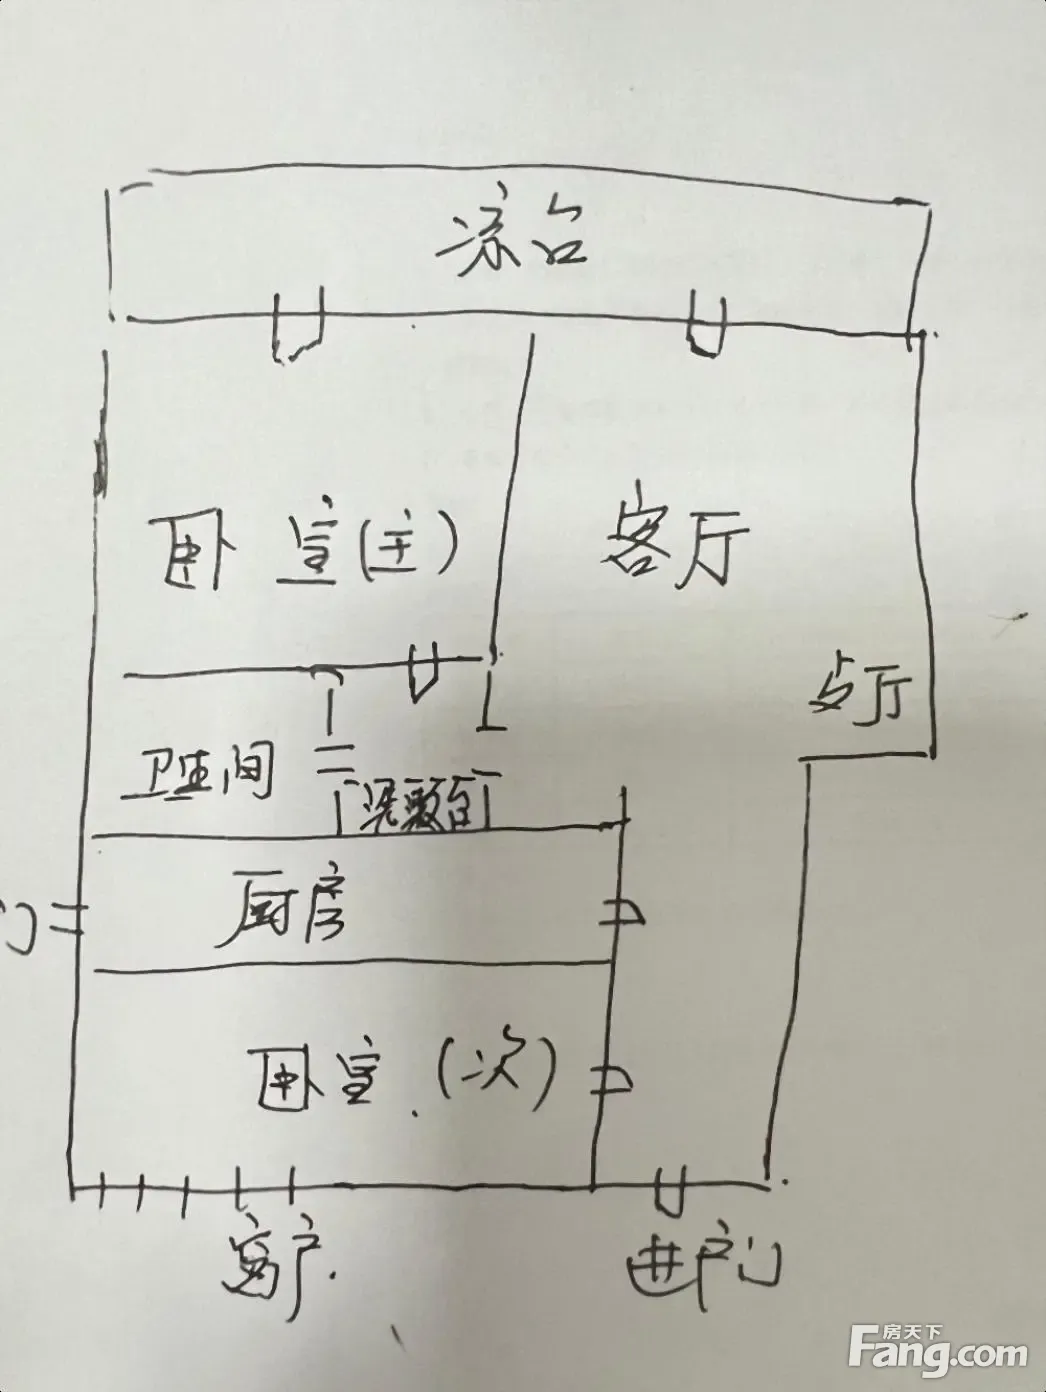 凉台
卧室(主)
客厅
卫生间
梳洗台
厨房
门
卧室(次)
窗户
进户门
房天下
Fang.com